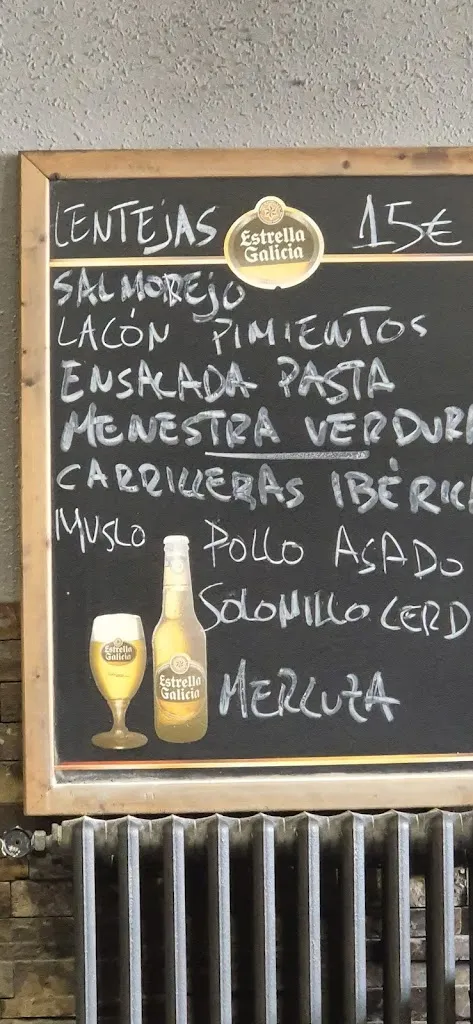 LENTEJAS 15€
Estrella
Galicia
SALMOREJO
LACÓN PIMIENTOS
ENSALADA PASTA
MENESTRA VERDUR
CARRILLERAS IBÉRIC
MUSLO POLLO ASADO
SOLOMILLO CERD
MERLUZA
Estrella
Galicia
Estrella
Galicia